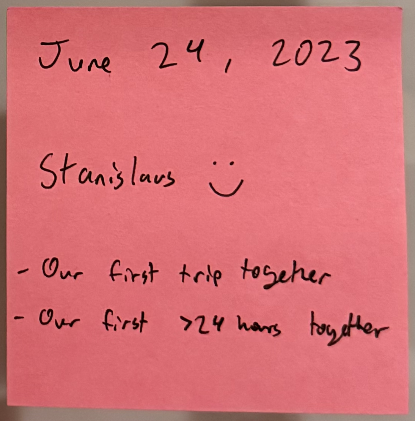 June 24, 2023
Stanislaus
- Our first trip together
- Our first >24 hours together